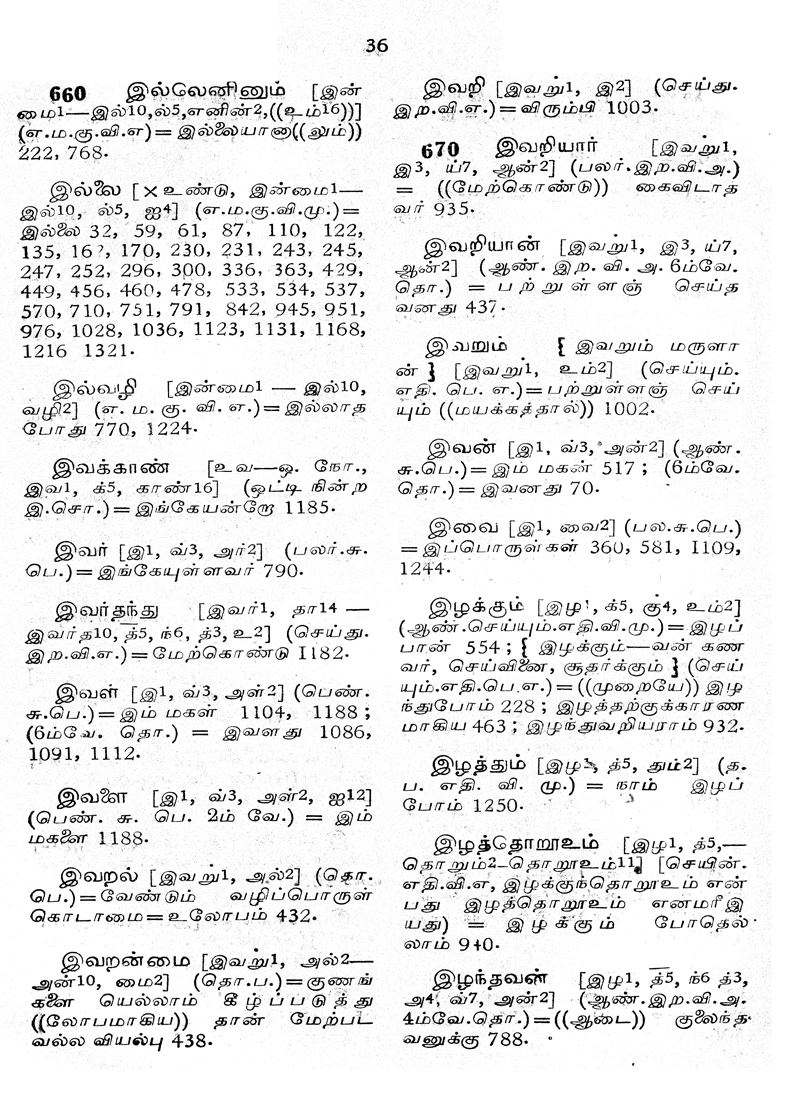 36
660 இல்லெனினும் [இன்
மை1—இல்10,ல்5,எனின்2,((உம்16))]
(எ.ம.கு.வி.எ)=இல்லையானா((லும்))
222, 768.
இல்லை [×உண்டு, இன்மை1—
இல்10, ல்5, ஐ4] (எ.ம.கு.வி.மு.)=
இல்லை 32, 59, 61, 87, 110, 122,
135, 170, 230, 231, 243, 245,
247, 252, 296, 300, 336, 363, 429,
449, 456, 460, 478, 533, 534, 537,
570, 710, 751, 791, 842, 945, 951,
976, 1028, 1036, 1123, 1131, 1168,
1216 1321.
இல்வழி [இன்மை1 — இல்10,
வழி2] (எ. ம. கு. வி. எ.)=இல்லாத
போது 770, 1224.
இவக்காண் [உவ—ஒ. நோ.,
இவ1, க்5, காண்16] (ஒட்டி நின்ற
இ.சொ.)=இங்கேயன்றே 1185.
இவர் [இ1, வ்3, அர்2] (பலர்.சு.
பெ.)=இங்கேயுள்ளவர் 790.
இவர்தந்து [இவர்1, தா14 —
இவர்த10, த்5, ந்6, த்3, உ2] (செய்து.
இற.வி.எ.)=மேற்கொண்டு 1182.
இவள் [இ1, வ்3, அள்2] (பெண்.
சு.பெ.)=இம் மகள் 1104, 1188;
(6ம்வே. தொ.) = இவளது 1086,
1091, 1112.
இவளை [இ1, வ்3, அள்2, ஐ12]
(பெண். சு. பெ. 2ம் வே.) = இம்
மகளை 1188.
இவறல் [இவறு1, அல்2] (தொ.
பெ.)=வேண்டும் வழிப்பொருள்
கொடாமை=உலோபம் 432.
இவறன்மை [இவறு1, அல்2—
அன்10, மை2] (தொ.ப.)=குணங்
களை யெல்லாம் கீழ்ப்படுத்து
((லோபமாகிய)) தான் மேற்பட
வல்ல வியல்பு 438.
இவறி [இவறு1, இ2] (செய்து.
இற.வி.எ.)=விரும்பி 1003.
670 இவறியார் [இவறு1,
இ3, ய்7, ஆன்2] (பலர்.இற.வி.அ.)
= ((மேற்கொண்டு)) கைவிடாத
வர் 935.
இவறியான் [இவறு1, இ3, ய்7,
ஆன்2] (ஆண். இற. வி. அ. 6ம்வே.
தொ.) = பற்றுள்ளஞ் செய்த
வனது 437.
இவறும் { இவறும் மருளா
ன் } [இவறு1, உம்2] (செய்யும்.
எதி. பெ. எ.)=பற்றுள்ளஞ் செய்
யும் ((மயக்கத்தால்)) 1002.
இவன் [இ1, வ்3, அன்2] (ஆண்.
சு.பெ.)=இம் மகன் 517; (6ம்வே.
தொ.)=இவனது 70.
இவை [இ1, வை2] (பல.சு.பெ.)
=இப்பொருள்கள் 360, 581, 1109,
1244.
இழக்கும் [இழ1, க்5, கு4, உம்2]
(ஆண்.செய்யும்.எதி.வி.மு.)=இழப்
பான் 554; { இழக்கும்—வன் கண
வர், செய்வினை, சூதர்க்கும் } (செய்
யும்.எதி.பெ.எ.)=((முறையே)) இழ
ந்துபோம் 228; இழத்தற்குக்காரண
மாகிய 463; இழந்துவறியராம் 932.
இழத்தும் [இழ, த்5, தும்2] (த.
ப. எதி. வி. மு.) = நாம் இழப்
போம் 1250.
இழத்தொறூஉம் [இழ1, த்5,—
தொறும்2-தொறூஉம்11] [செயின்.
எதி.வி.எ, இழக்குந்தொறூஉம் என்
பது இழத்தொறூஉம் எனமரீஇ
யது) = இழக்கும் போதெல்
லாம் 940.
இழந்தவன் [இழ1, த்5, ந்6 த்3,
அ4, வ்7, அன்2] (ஆண்.இற.வி.அ.
4ம்வே.தொ.)=((ஆடை)) குலைந்த
வனுக்கு 788.